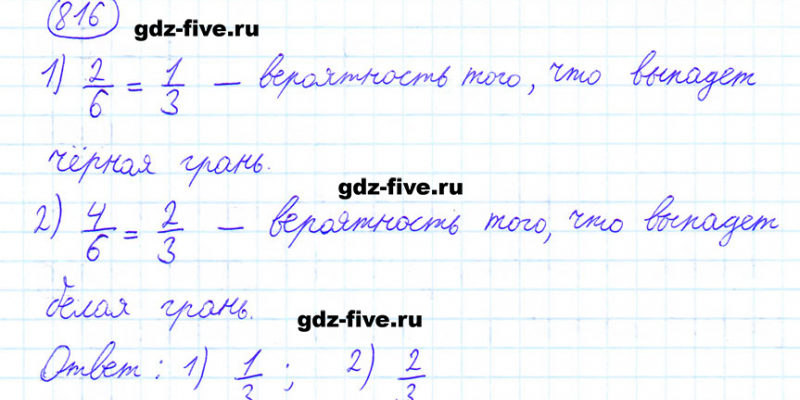 816
gdz-five.ru
1) 2/6 = 1/3 — вероятность того, что выпадет
чёрная грань.
gdz-five.ru
2) 4/6 = 2/3 — вероятность того, что выпадет
белая грань.
gdz-five.ru
Ответ: 1) 1/3; 2) 2/3